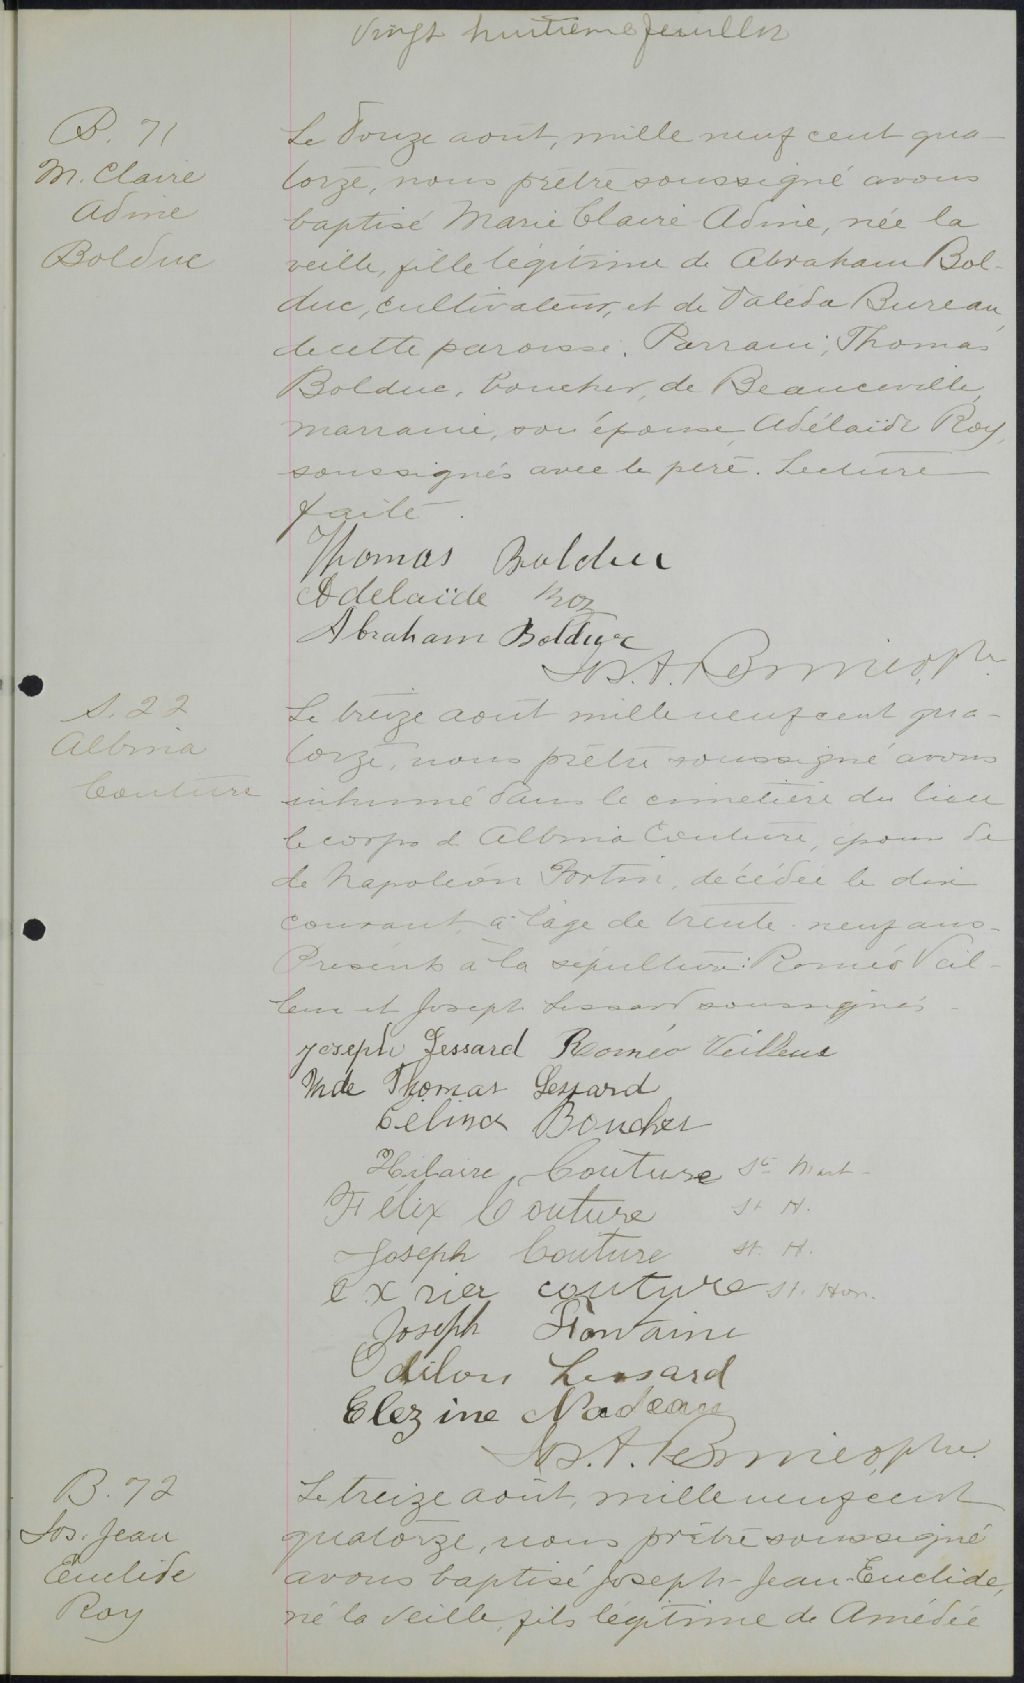 Vingt huitième feuillet
B. 71
M. Claire
Adine
Bolduc
Le douze août, mille neuf cent qua-
torze, nous prêtre soussigné avons
baptisé Marie Claire Adine, née la
veille, fille légitime de Abraham Bol-
duc, cultivateur, et de Valéda Bureau,
de cette paroisse. Parrain, Thomas
Bolduc, boucher, de Beauceville,
marraine, son épouse, Adélaïde Roy,
soussignés avec le père. Lecture
faite.
Thomas Bolduc
Adelaïde Roy
Abraham Bolduc
Jos. A. Bernier, ptre.
S. 22
Albina
Couture
Le treize août mille neuf cent qua-
torze, nous prêtre soussigné avons
inhumé dans le cimetière du lieu
le corps d'Albina Couture, épouse de
de Napoléon Fortin, décédée le dix
courant, à l'âge de trente-neuf ans.
Présents à la sépulture: Roméo Veil-
leux et Joseph Lessard soussignés.
Joseph Lessard Roméo Veilleux
Mde Thomas Lessard
Célina Boucher
Hilaire Couture St Mart-
Félix Couture St H.
Joseph Couture St. H.
couture St. Hon.
Joseph Fontaine
Odilon Lessard
Elezine Nadeau
Jos. A. Bernier, ptre.
B. 72
Jos. Jean
Euclide
Roy
Le treize août, mille neuf cent
quatorze, nous prêtre soussigné
avons baptisé Joseph-Jean-Euclide,
né la veille, fils légitime de Amédée